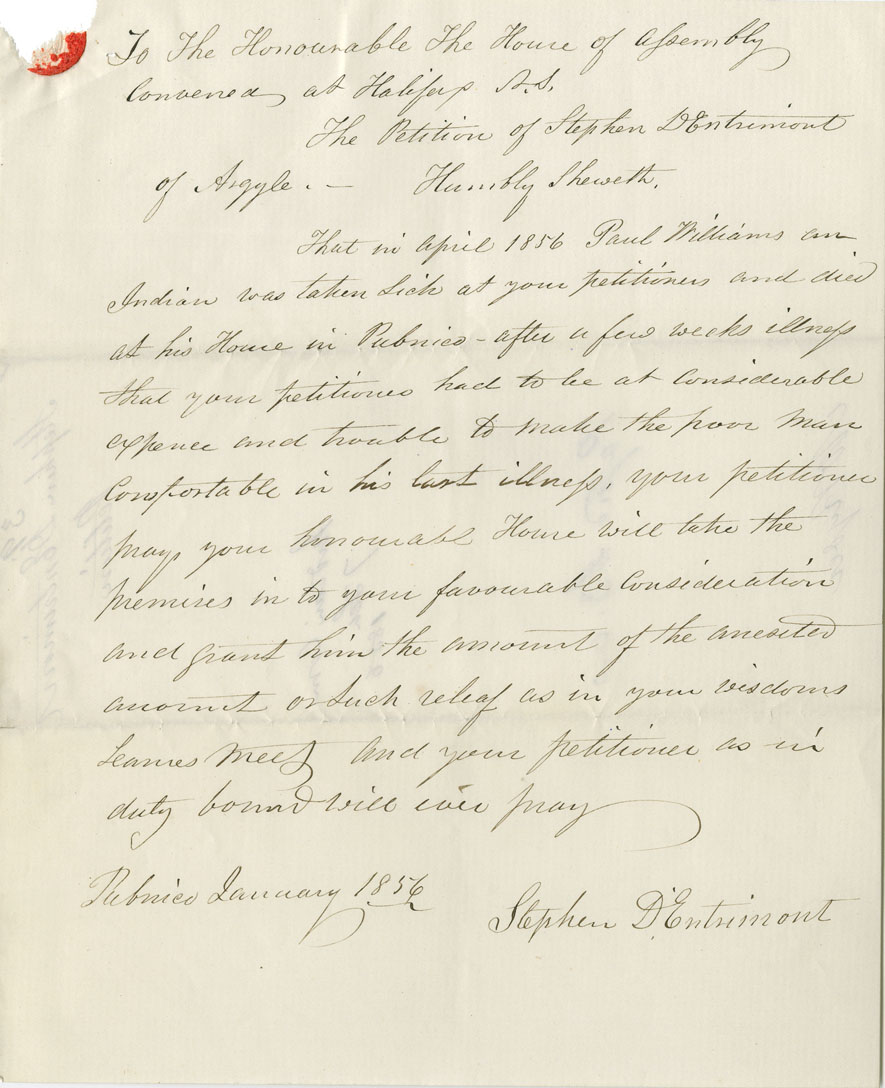 To The Honourable The House of Assembly
Convened at Halifax N.S.
The Petition of Stephen D'Entrimont
of Argyle. — Humbly Sheweth.
That in April 1856 Paul Williams an
Indian was taken Sick at your petitioners and died
at his House in Pubnico - after a few weeks illness
that your petitioner had to be at Considerable
expence and trouble to make the poor Man
Comfortable in his last illness. your petitioner
prays your honourable House will take the
premises in to your favourable Consideration
and grant him the amount of the anesited
amount or Such releaf as in your wisdoms
Seames Meet And your petitioner as in
duty bound will ever pray
Pubnico January 1856
Stephen D'Entrimont